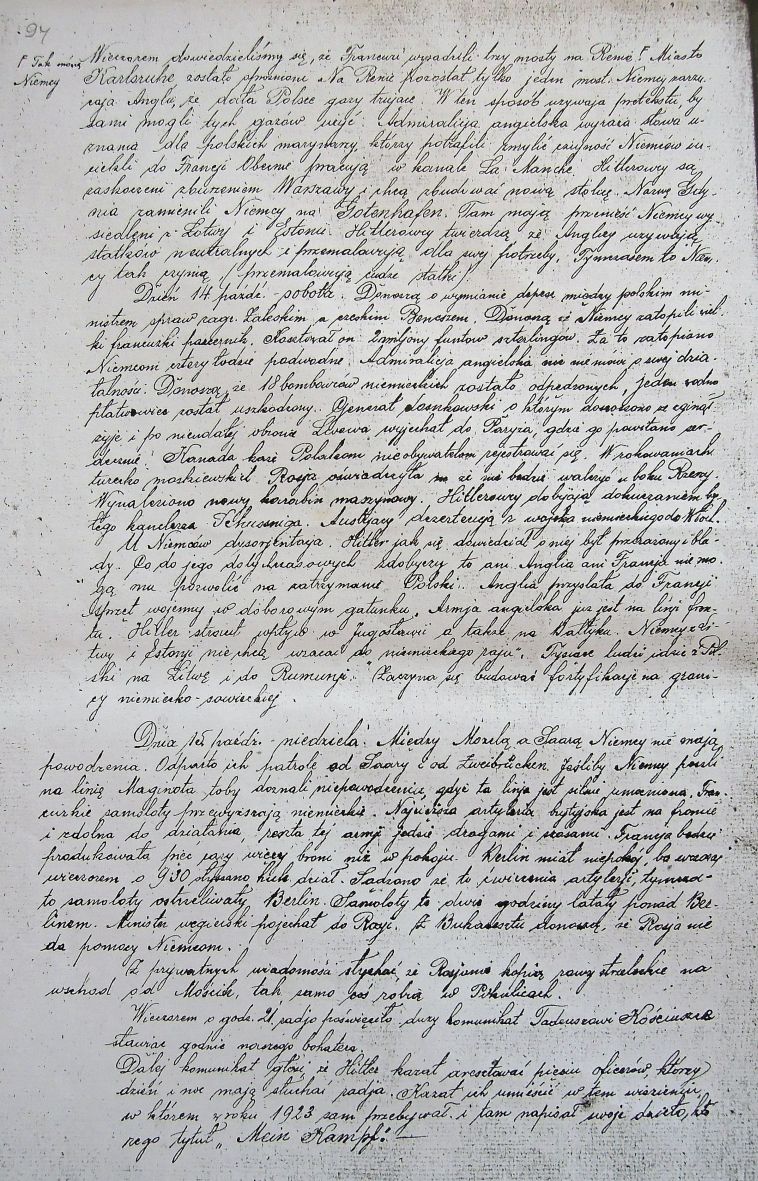 94
! Tak mówią
Niemcy
Wieczorem dowiedzieliśmy się, że Francuzi wysadzili trzy mosty na Renie! Miasto
Karlsruhe zostało opróżnione. Na Renie pozostał tylko jeden most. Niemcy zarzu-
cają Anglii, że dała Polsce gazy trujące. W ten sposób używają pretekstu, by
sami mogli tych gazów użyć. Admiralicja angielska wyraża słowa u-
znania dla polskich marynarzy, którzy potrafili zmylić czujność Niemców i u-
ciekli do Francji Obecnie pracują w kanale La Manche. Hitlerowcy są
zaskoczeni zburzeniem Warszawy i chcą zbudować nową stolicę. Nazwę Gdy-
nia zamienili Niemcy na Gotenhafen. Tam mają przenieść Niemcy wy-
siedleni z Łotwy i Estonii. Hitlerowcy twierdzą że Anglicy używają
statków neutralnych i przemalowują dla swej potrzeby. Tymczasem to Niem-
cy tak czynią / przemalowują cudze statki/.
Dzień 14 paźdź. sobota. Donoszą o wymianie depesz między polskim mi-
nistrem spraw zagr. Zaleskim, a czeskim Beneszem. Donoszą że Niemcy zatopili wiel-
ki francuski pancernik. Kosztował on 2 miljony funtów szterlingów. Za to zatopiono
Niemcom cztery łodzie podwodne. Admiralicja angielska nic nie mówi o swej dzia-
łalności. Donoszą, że 18 bombowców niemieckich zostało odpędzonych, jeden wodno
płatowiec został uszkodzony. Generał Sosnkowski o którym donoszono że zginął
żyje i po nieudałej obronie Lwowa wyjechał do Paryża, gdzie go powitano ser-
decznie! Kanada każe Polakom nieobywatelom rejestrować się. W rokowaniach
turecko moskiewskich Rosja oświadczyła że nie będzie walczyć u boku Rzeszy.
Wynaleziono nowy karabin maszynowy. Hitlerowcy dobijają dokuczaniem by-
łego kanclerza Schusniga. Austryacy dezerterują z wojska niemieckiego do Włoch.
U Niemców dysorjentacja Hitler jak się dowiedział o niej był przerażony i bla-
dy. Co do jego dotychczasowych zdobyczy to ani Anglia ani Francja nie mo-
gą mu pozwolić na zatrzymanie Polski. Anglia przysłała do Francji
sprzęt wojenny w doborowym gatunku. Armja angielska już jest na linji fron-
tu. Hitler stracił wpływ w Jugosławii a także na Bałtyku. Niemcy z Li-
twy i Estonji nie chcą wracać do niemieckiego raju". Tysiące ludzi idzie z Pol-
ski na Litwę i do Rumunji. Zaczyna się budować fortyfikacje na grani-
cy niemiecko-sowieckiej.
Dnia 15 paźdź. - niedziela. Między Mozelą a Saarą Niemcy nie mają
powodzenia. Odparto ich patrole od Saary i od Zweibrücken. Jeśliby Niemcy poszli
na linię Maginota toby doznali niepowodzenia, gdyż ta linja jest silnie umocniona. Fran-
cuskie samoloty przewyższają niemieckie. Najcięższa artylerja brytyjska jest na froncie
i zdolna do działania, reszta tej armji jedzie drogami i szosami. Francja będzie
produkowała pięć razy więcej broni niż w pokoju. Berlin miał niepokój, bo wczoraj
wieczorem o 9 30 słyszano huk dział. Sądzono że to ćwiczenia artylerji, tymcza-
to samoloty ostrzeliwały Berlin. Samoloty te dwie godziny latały ponad Ber-
linem. Minister węgierski pojechał do Rosji. Z Bukaresztu donoszą, że Rosja nie
da pomocy Niemcom.
Z prywatnych wiadomości słychać, że Rosjanie kopią rowy strzeleckie na
wschód od Mościsk, tak samo coś robią w Pikulicach.
Wieczorem o godz. 21. radjo poświęciło duży komunikat Tadeuszowi Kościuszce
sławiąc godnie naszego bohatera.
Dalej komunikat głosi, że Hitler kazał aresztować pięciu oficerów, którzy
dzień i noc mają słuchać radja. Kazał ich umieścić w tem więzieniu,
w którem z roku 1923 sam przebywał i tam napisał swoje dzieło, któ-
rego tytuł „Mein Kampf". —